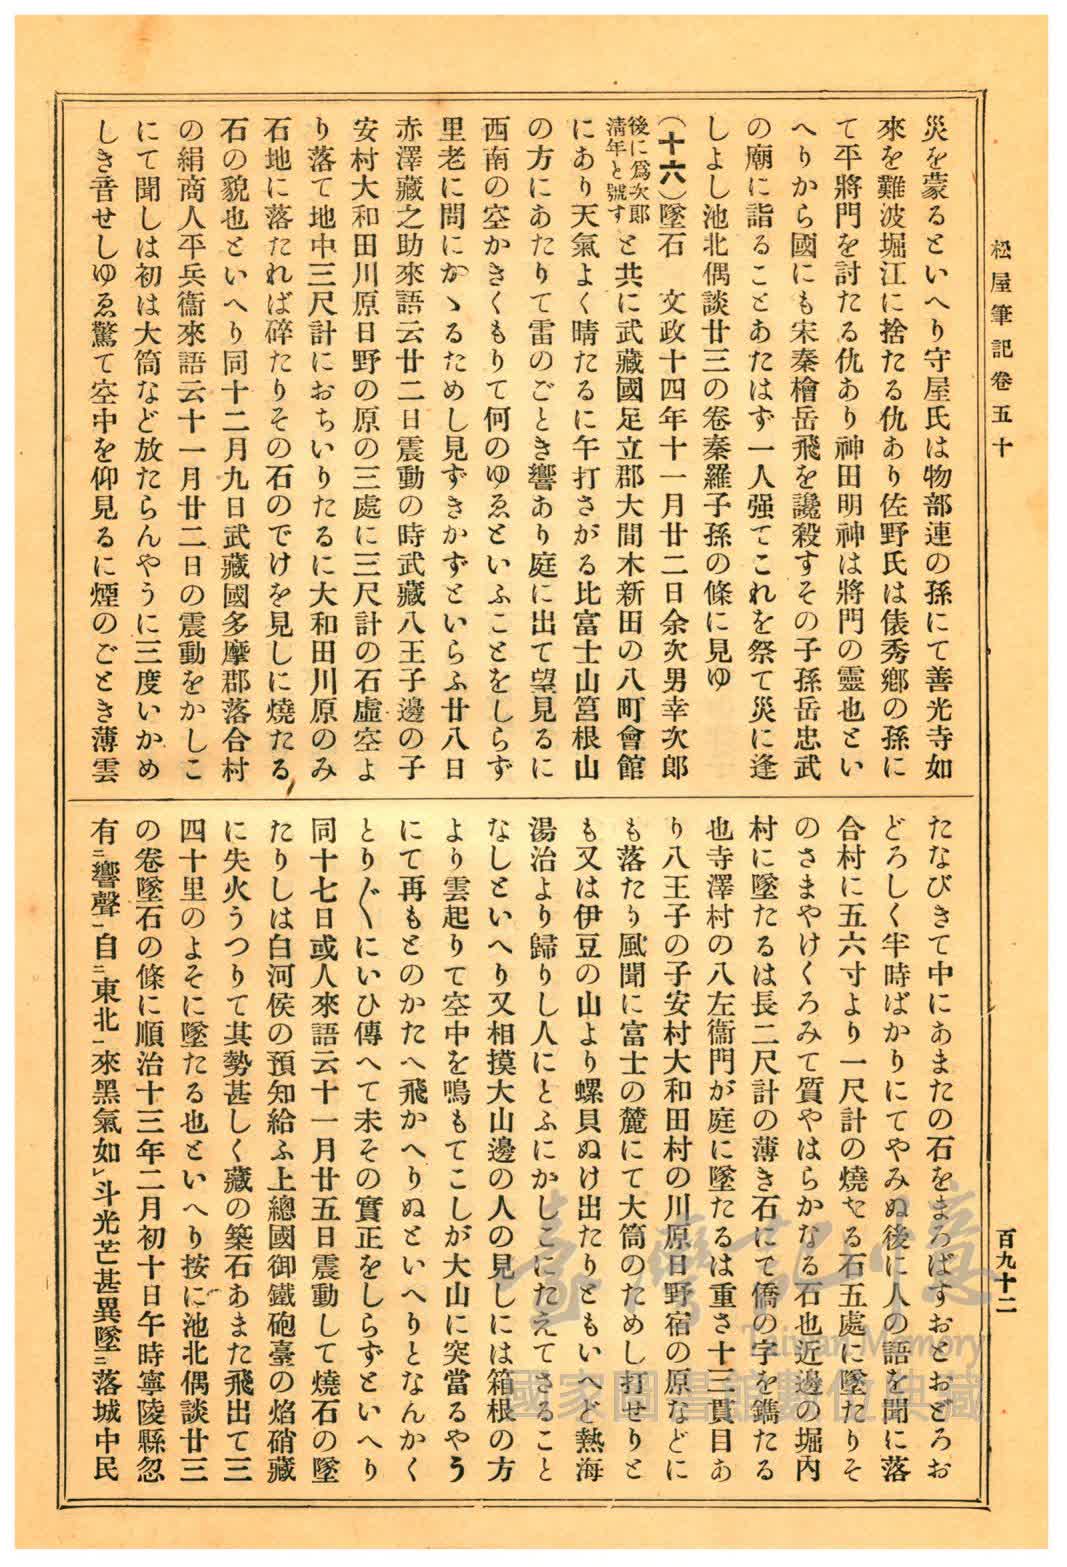 松屋筆記卷五十
災を蒙るといへり守屋氏は物部連の孫にて善光寺如
來を難波堀江に捨たる仇あり佐野氏は俵秀鄕の孫に
て平將門を討たる仇あり神田明神は將門の靈也とい
へりから國にも宋秦檜岳飛を讒殺すその子孫岳忠武
の廟に詣ることあたはず一人强てこれを祭て災に逢
しよし池北偶談廿三の卷秦羅子孫の條に見ゆ
(十六)墜石　文政十四年十一月廿二日余次男幸次郞
後に爲次郞
淸年と號す
と共に武藏國足立郡大間木新田の八町會館
にあり天氣よく晴たるに午打さがる比富士山筥根山
の方にあたりて雷のごとき響あり庭に出て望見るに
西南の空かきくもりて何のゆゑといふことをしらず
里老に問にかゝるためし見ずきかずといらふ廿八日
赤澤藏之助來語云廿二日震動の時武藏八王子邊の子
安村大和田川原日野の原の三處に三尺計の石虛空よ
り落て地中三尺計におちいりたるに大和田川原のみ
石地に落たれば碎たりその石のでけを見しに燒たる
石の貌也といへり同十二月九日武藏國多摩郡落合村
の絹商人平兵衞來語云十一月廿二日の震動をかしこ
にて聞しは初は大筒など放たらんやうに三度いかめ
しき音せしゆゑ驚て空中を仰見るに煙のごとき薄雲
たなびきて中にあまたの石をまろばすおとおどろお
どろしく半時ばかりにてやみぬ後に人の語を聞に落
合村に五六寸より一尺計の燒たる石五處に墜たりそ
のさまやけくろみて質やはらかなる石也近邊の堀內
村に墜たるは長二尺計の薄き石にて僑の字を鐫たる
也寺澤村の八左衞門が庭に墜たるは重さ十三貫目あ
り八王子の子安村大和田村の川原日野宿の原などに
も落たり風聞に富士の麓にて大筒のためし打せりと
も又は伊豆の山より螺貝ぬけ出たりともいへど熱海
湯治より歸りし人にとふにかしこにたえてさること
なしといへり又相摸大山邊の人の見しには箱根の方
より雲起りて空中を鳴もてこしが大山に突當るやう
にて再もとのかたへ飛かへりぬといへりとなんかく
とり〲にいひ傳へて未その實正をしらずといへり
同十七日或人來語云十一月廿五日震動して燒石の墜
たりしは白河侯の預知給ふ上總國御鐵砲臺の焰硝藏
に失火うつりて其勢甚しく藏の築石あまた飛出て三
四十里のよそに墜たる也といへり按に池北偶談廿三
の卷墜石の條に順治十三年二月初十日午時寧陵縣忽
有㆓響聲㆒自㆓東北㆒來黑氣如㆑斗光芒甚異墜㆓落城中民
百九十二
臺灣記憶
Taiwan Memory
國家圖書館數位典藏